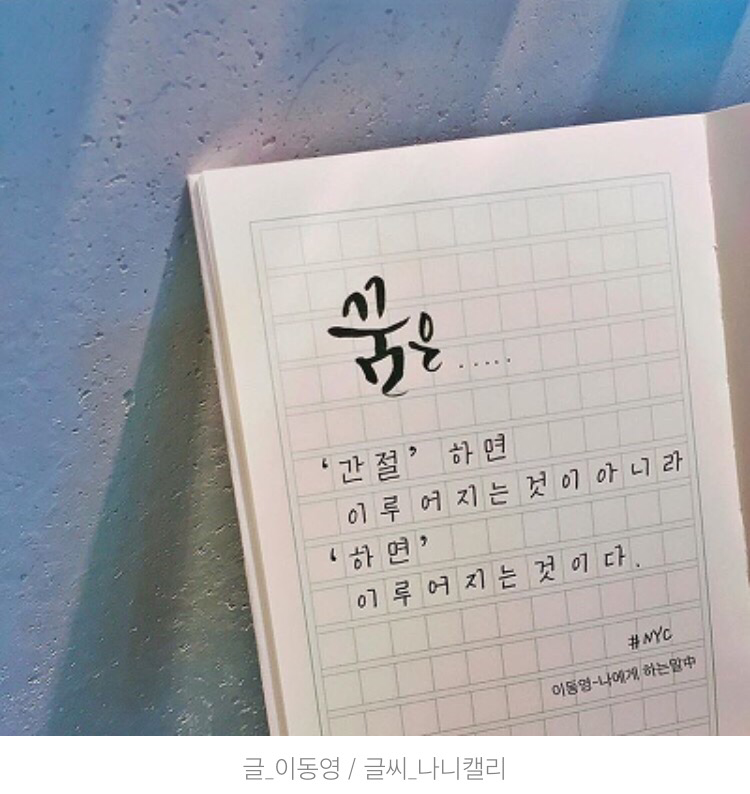 꿈은.....
‘간절’ 하면
이루어지는것이아니라
‘하면’
이루어지는것이다.
#NYC
이동영-나에게 하는말中
글_이동영 / 글씨_나니캘리